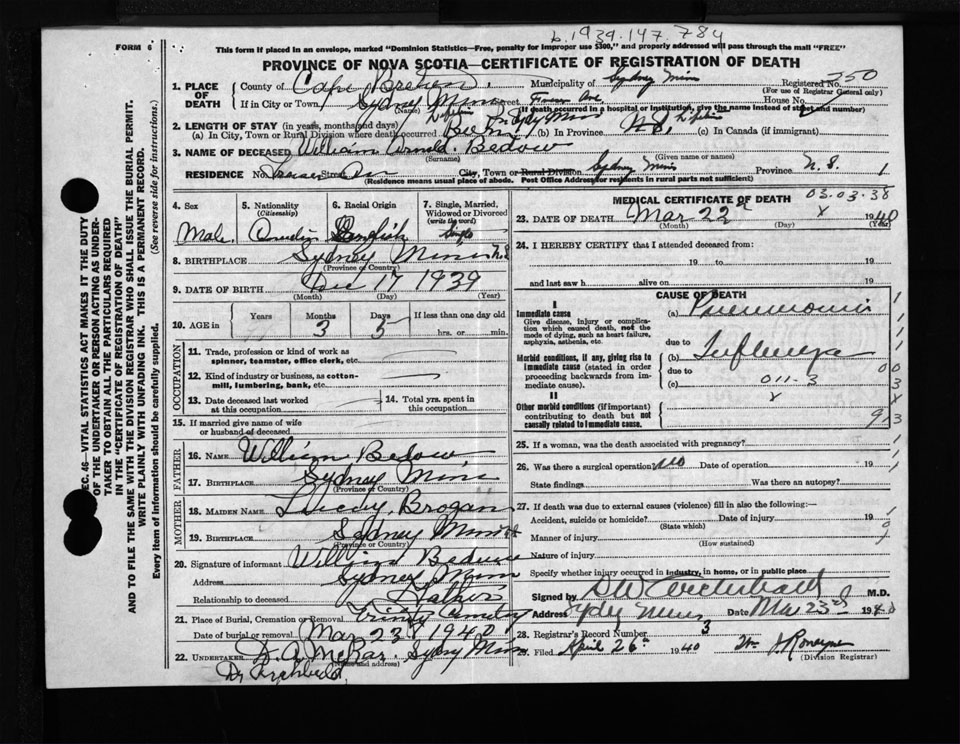 b. 1939.147.784
FORM 6
This form if placed in an envelope, marked "Dominion Statistics—Free, penalty for improper use $300," and properly addressed will pass through the mail "FREE"
PROVINCE OF NOVA SCOTIA—CERTIFICATE OF REGISTRATION OF DEATH
1. PLACE OF DEATH
County of Cape Breton Municipality of Sydney Mines Registered No. 250
(For use of Registrar General only)
If in City or Town Sydney Mines Street Ave House No.
(Name) (If death occurred in a hospital or institution, give the name instead of street and number)
2. LENGTH OF STAY (in years, months and days)
(a) In City, Town or Rural Division where death occurred Lifetime (b) In Province N.S. Lifetime (c) In Canada (if immigrant)
3. NAME OF DECEASED William Arnold Bedow
(Surname) (Given name or names)
RESIDENCE No. Street City, Town or Rural Division Sydney Mines Province N.S. 1
(Residence means usual place of abode. Post Office Address for residents in rural parts not sufficient)
4. Sex 5. Nationality (Citizenship) 6. Racial Origin 7. Single, Married, Widowed or Divorced (write the word)
Male English Single
8. BIRTHPLACE Sydney Mines N.S.
(Province or Country)
9. DATE OF BIRTH Dec 17 1939
(Month) (Day) (Year)
10. AGE in Years Months Days If less than one day old
3 5 hrs. or min.
OCCUPATION
11. Trade, profession or kind of work as spinner, teamster, office clerk, etc.
12. Kind of industry or business, as cotton-mill, lumbering, bank, etc.
13. Date deceased last worked at this occupation 14. Total yrs. spent in this occupation.
15. If married give name of wife or husband of deceased
FATHER
16. NAME William Bedow
17. BIRTHPLACE Sydney Mines
(Province or Country)
MOTHER
18. MAIDEN NAME Brogan
19. BIRTHPLACE Sydney Mines
(Province or Country)
20. Signature of informant William Bedow
Address Sydney Mines
Relationship to deceased Father
21. Place of Burial, Cremation or Removal Trinity Cemetery
Date of burial or removal Mar 23 1940
22. UNDERTAKER D. A. McRae Sydney Mines
(Name and address)
Dr Archibald
MEDICAL CERTIFICATE OF DEATH 03.03.38
23. DATE OF DEATH Mar 22nd x 1940
(Month) (Day) (Year)
24. I HEREBY CERTIFY that I attended deceased from:
19 to 19
and last saw h alive on 19
CAUSE OF DEATH
I
Immediate cause (a) Pneumonia
Give disease, injury or complication which caused death, not the mode of dying, such as heart failure, asphyxia, asthenia, etc.
due to
Morbid conditions, if any, giving rise to immediate cause (stated in order proceeding backwards from immediate cause). (b) Influenza
due to
(c) 011-3
II x
Other morbid conditions (if important) contributing to death but not causally related to immediate cause. 93
25. If a woman, was the death associated with pregnancy?
26. Was there a surgical operation? no Date of operation 19
State findings Was there an autopsy?
27. If death was due to external causes (violence) fill in also the following:—
Accident, suicide or homicide? Date of injury 19
(State which)
Manner of injury
(How sustained)
Nature of injury
Specify whether injury occurred in industry, in home, or in public place
Signed by Archibald M.D.
Address Sydney Mines Date Mar 23rd 1940
28. Registrar's Record Number 3
29. Filed April 26th 1940
(Division Registrar)
SEC. 46—VITAL STATISTICS ACT MAKES IT THE DUTY OF THE UNDERTAKER OR PERSON ACTING AS UNDERTAKER TO OBTAIN ALL THE PARTICULARS REQUIRED IN THE "CERTIFICATE OF REGISTRATION OF DEATH" AND TO FILE THE SAME WITH THE DIVISION REGISTRAR WHO SHALL ISSUE THE BURIAL PERMIT.
WRITE PLAINLY WITH UNFADING INK. THIS IS A PERMANENT RECORD.
Every item of information should be carefully supplied. (See reverse side for instructions.)